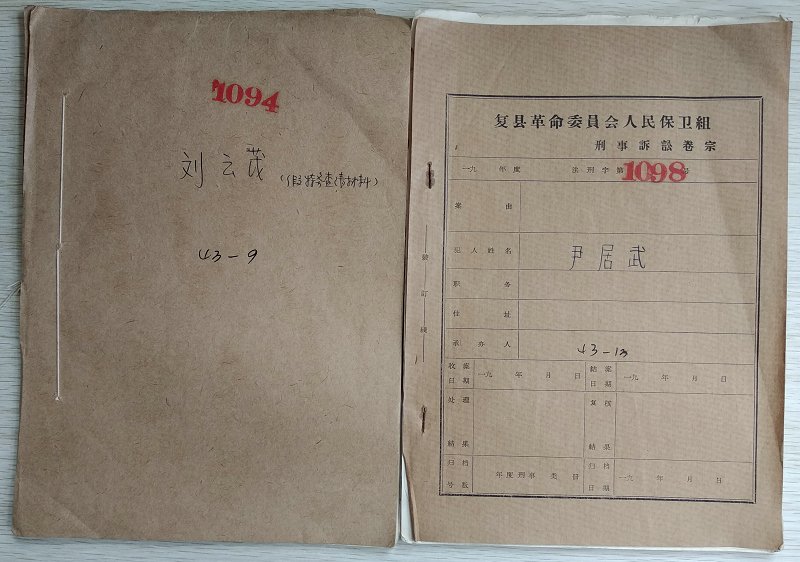 1094
刘云茂
43-9
复县革命委員会人民保卫組
刑事訴訟卷宗
一九 年度 法刑字第1098号
案由
犯人姓名 尹居武
职务
住址
承办人
43-13
收案日期 一九 年 月 日 結案日期 一九 年 月 日
处理結果 复核結果
归档号数 年度刑事 类 归档日期 一九 年 月 日
装訂綫